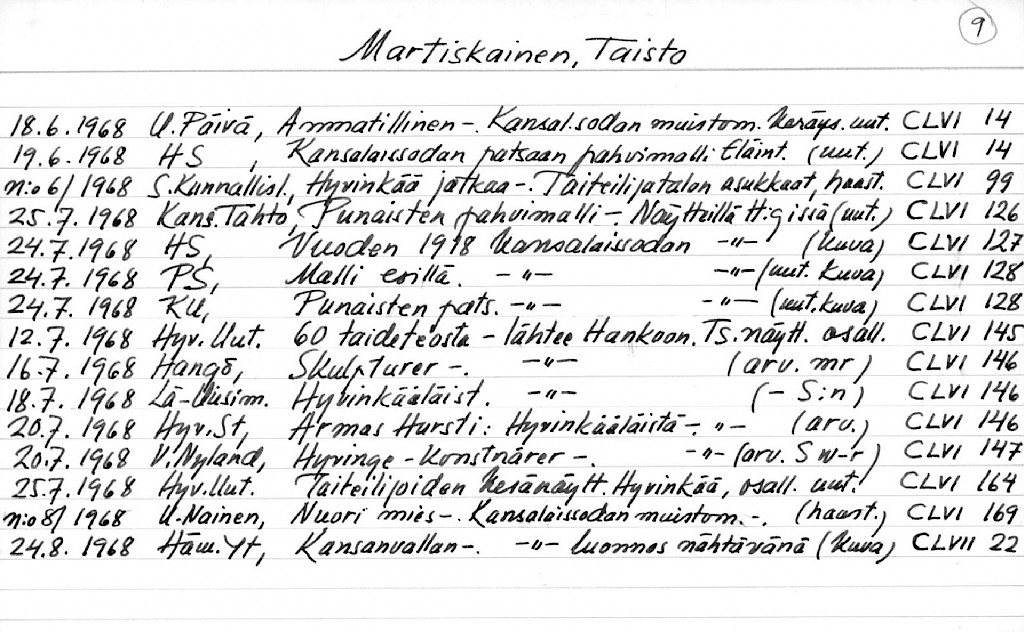 9
Martiskainen, Taisto
18.6.1968 U.Päivä, Ammatillinen-. Kansal.sodan muistom. keräys. uut. CLVI 14
19.6.1968 HS , Kansalaissodan patsaan pahvimalli Eläint. (uut.) CLVI 14
n:o 6/ 1968 S.Kunnallisl., Hyvinkää jatkaa-. Taiteilijatalon asukkaat, haast. CLVI 99
25.7.1968 Kans.Tahto, Punaisten pahvimalli-. Näytteillä H:gissä (uut.) CLVI 126
24.7.1968 HS, Vuoden 1918 kansalaissodan -"- (kuva) CLVI 127
24.7.1968 PS, Malli esillä. -"- -"- (uut. kuva) CLVI 128
24.7.1968 KU, Punaisten pats. -"- -"- (uut.kuva) CLVI 128
12.7.1968 Hyv.Uut. 60 taideteosta - lähtee Hankoon. Ts.näytt. osall. CLVI 145
16.7.1968 Hangö, Skulpturer -. -"- (arv. mr) CLVI 146
18.7.1968 Lä-Uusim. Hyvinkääläist. -"- (- S:n) CLVI 146
20.7.1968 Hyv.St, Armas Hursti: Hyvinkääläistä-. -"- (arv.) CLVI 146
20.7.1968 V.Nyland, Hyvinge-konstnärer -. -"- (arv. S w-r) CLVI 147
25.7.1968 Hyv.Uut. Taiteilijoiden kesänäytt. Hyvinkää, osall. uut. CLVI 164
n:o 8/ 1968 U-Nainen, Nuori mies-. Kansalaissodan muistom. -. (haast.) CLVI 169
24.8.1968 Häm.Yt, Kansanvallan-. -"- luonnos nähtävänä (kuva) CLVII 22